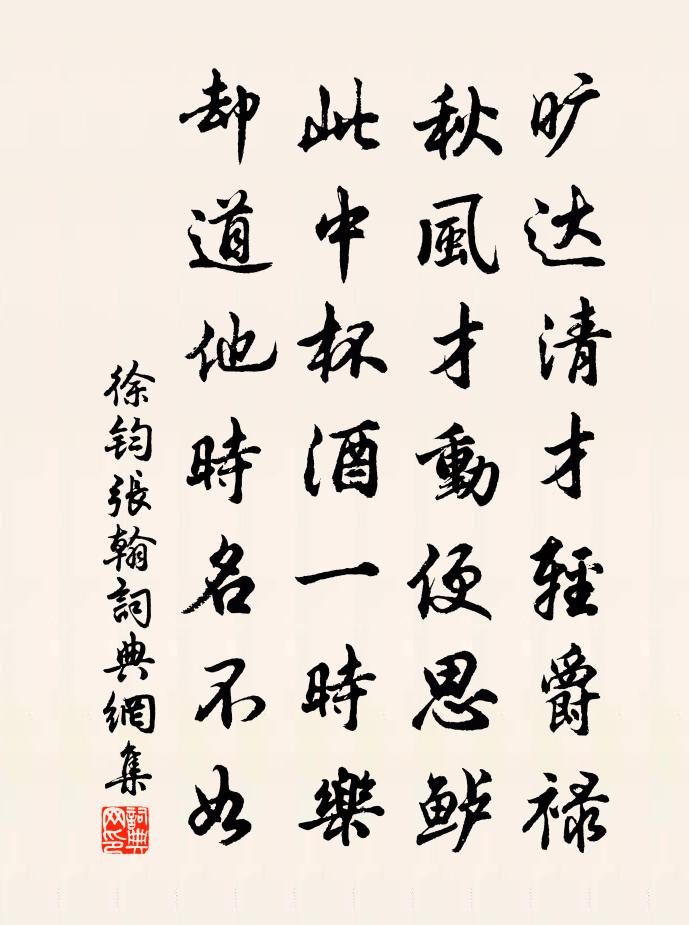 旷达清才輕爵禄
秋風才動便思鲈
此中杯酒一時樂
却道他時名不如
徐鈞張翰詞典網集
詞典网印